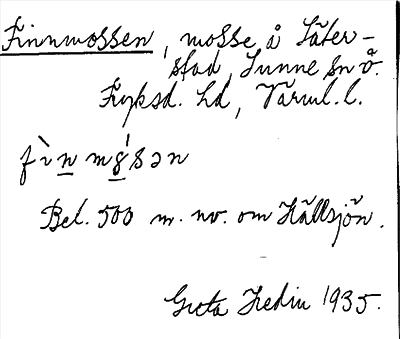 Finnmossen, mosse å Säter-
stad, Sunne sn ö.
Fryksd. hd, Värml. l.
fìnmɷ́sən
Bel. 500 m. nv. om Hällsjön.
Greta Hedin 1935.